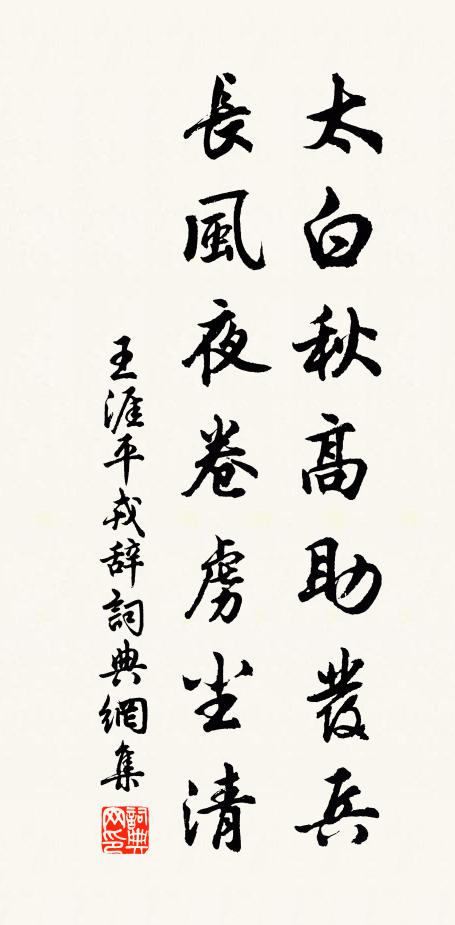 太白秋高助發兵
長風夜卷虜尘清
王涯平戎辞詞典網集
詞典
网印